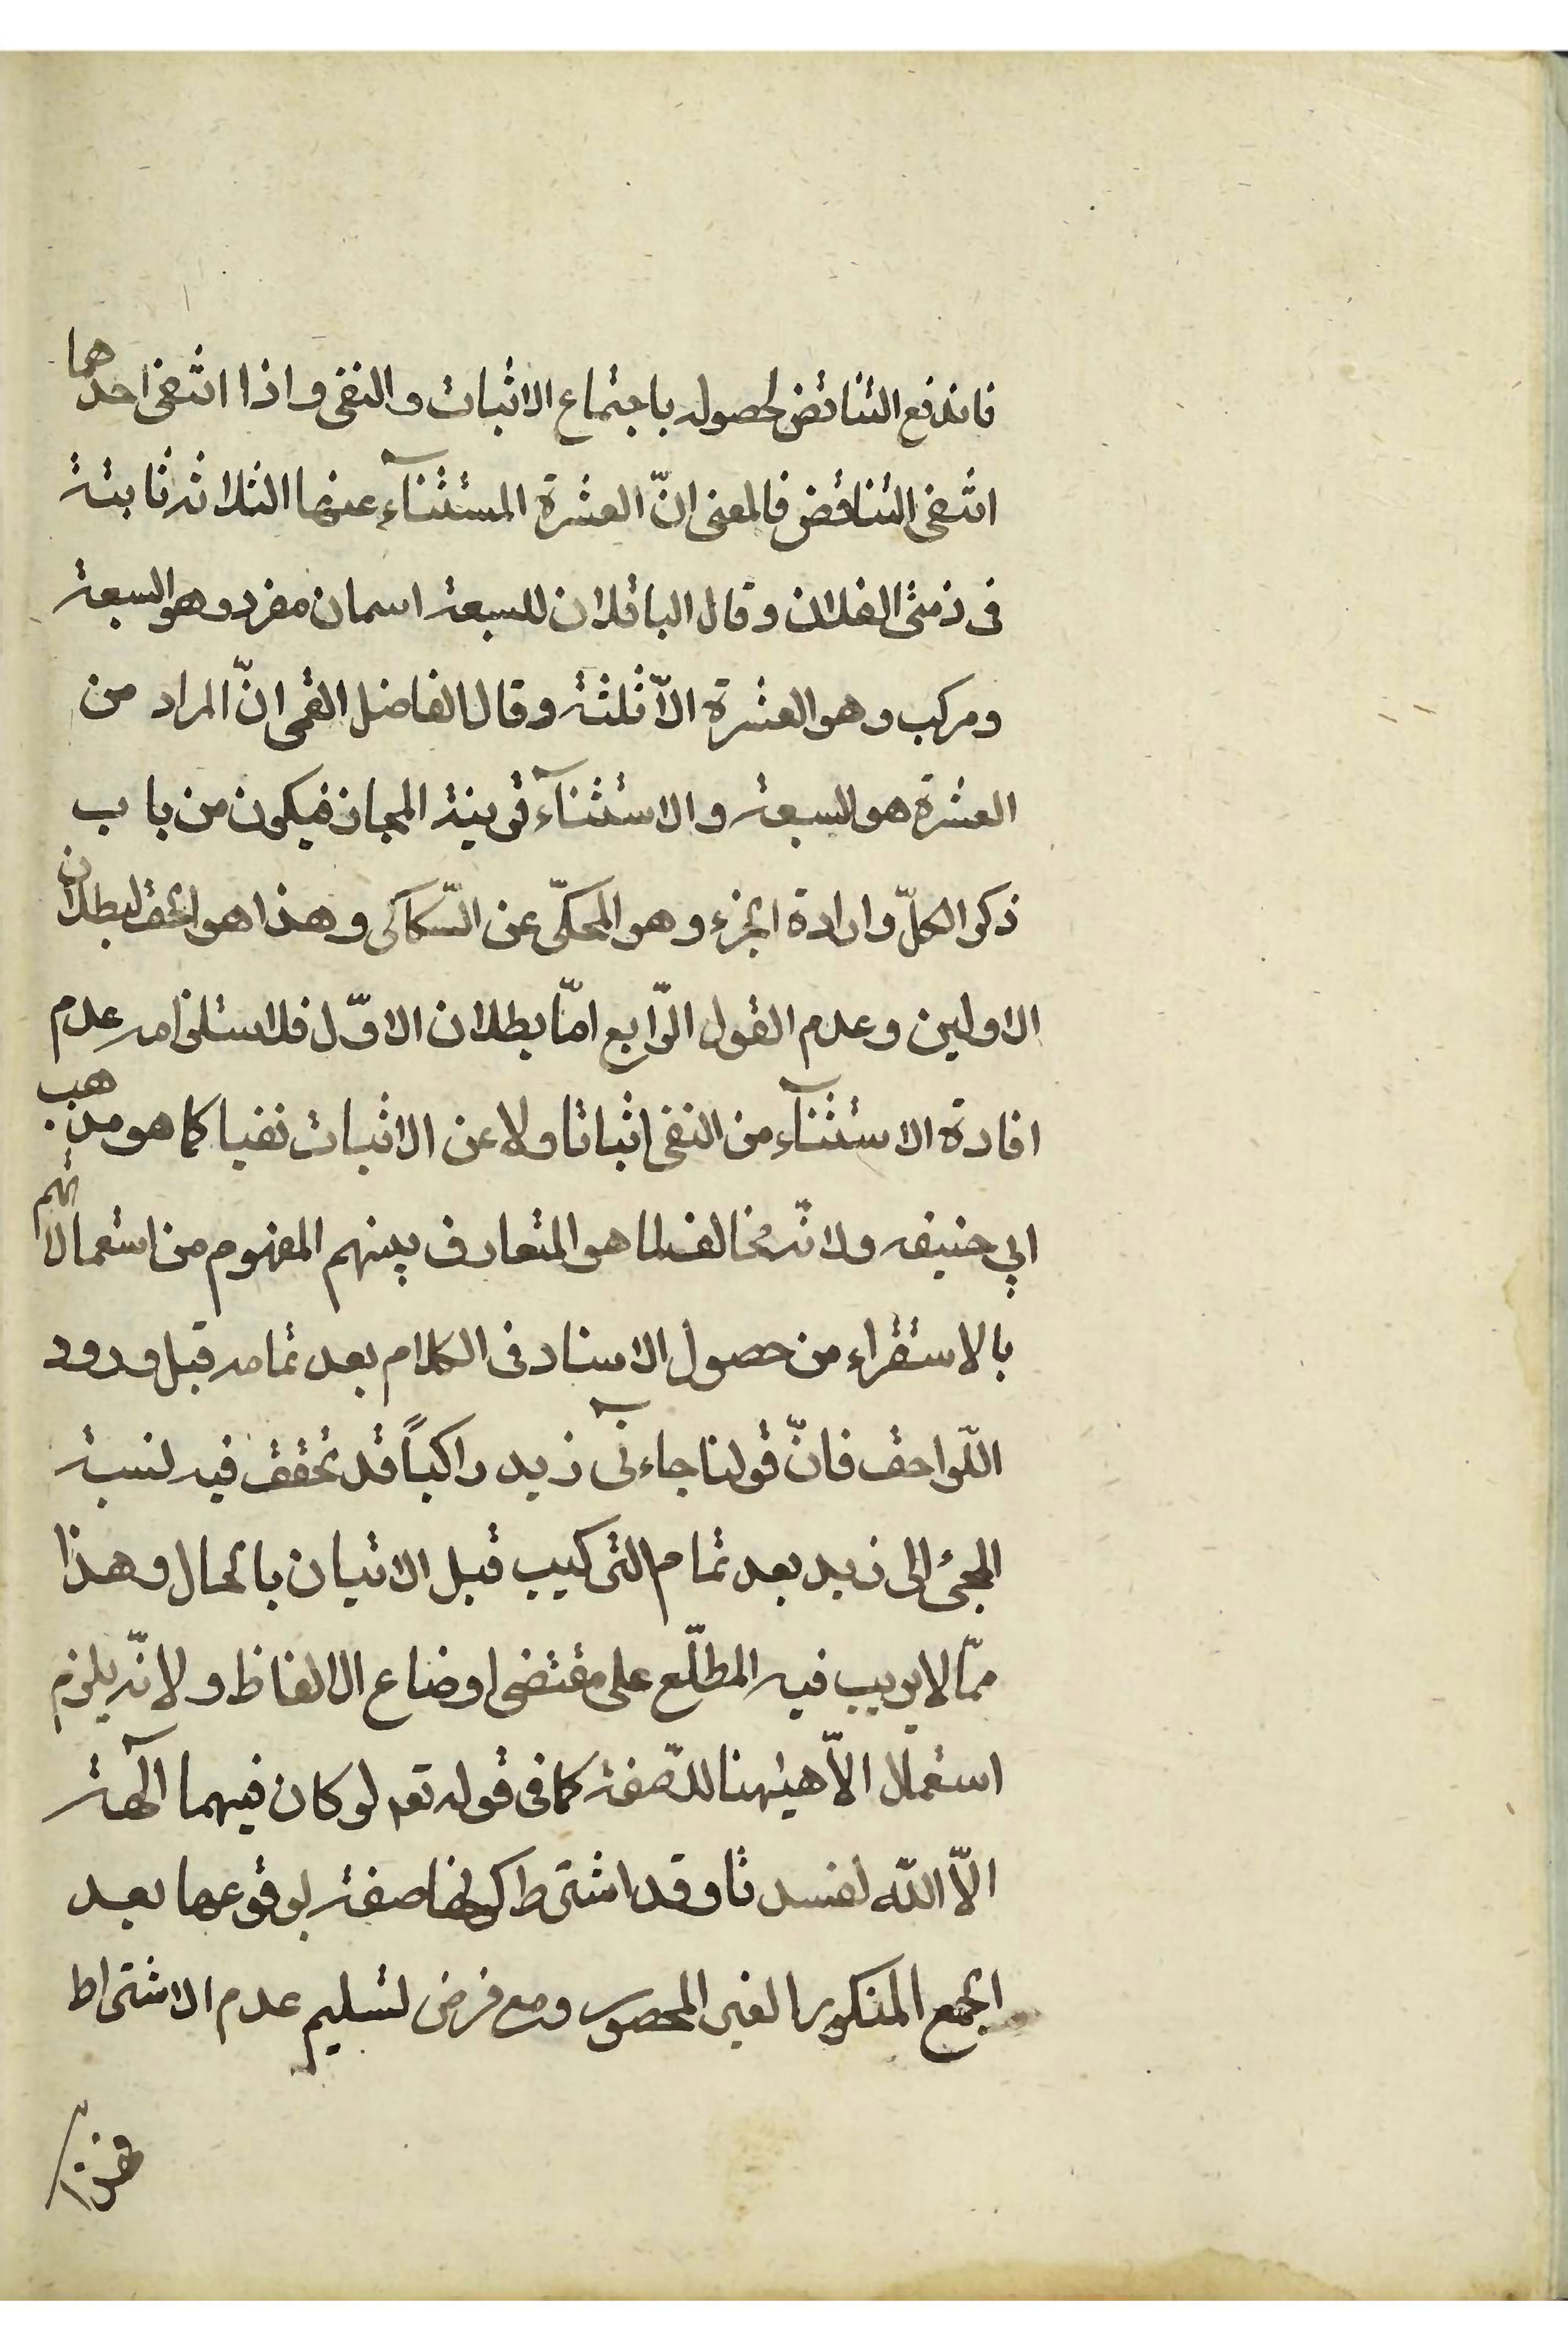 فاندفع التناقض لحصوله باجتماع الاثبات والنفی واذا انتفی احدهما
انتفی التناقض فالمعنی انّ العشرة المستثنآء عنها الثلاثه ثابتة
فی ذمتی الفلان وقال الباقلان للسبعة اسمان مفرد وهو السبعة
ومرکب وهو العشرة الاّ ثلثة وقال الفاضل القمی انّ المراد من
العشرة هو السبعة والاستثنآء قرینة المجاز فیکون من باب
ذکر الکلّ وارادة الجزء وهو المحکیّ عن السّکاکی وهذا هو الحق لبطلان
الاولین وعدم القول الرّابع امّا بطلان الاوّل فلاستلزامه عدم
افادة الاستثنآء من النفی اثباتا ولا عن الاثبات نفیا کما هو مذهب
ابی حنیفه ولانّه مخالف لما هو المتعارف بینهم المفهوم من استعمالاتهم
بالاستقراء من حصول الاسناد فی الکلام بعد تمامه قبل ورود
اللّواحق فانّ قولنا جاءنی زید راکباً قد تحقق فیه نسبة
المجیٔ الی زید بعد تمام الترکیب قبل الاتیان بالحال وهذا
ممّا لا یریب فیه المطلّع علی مقتضی اوضاع الالفاظ ولانّه یلزم
استعمال الاّ هیٰهنا للصّفة کما فی قوله تعه لو کان فیهما آلهة
الاّ اللّه لفسدتا وقد اشترط کونها صفة لوقوعها بعد
الجمع المنکور الغیر المحصور ومع فرض تسلیم عدم الاشتراط